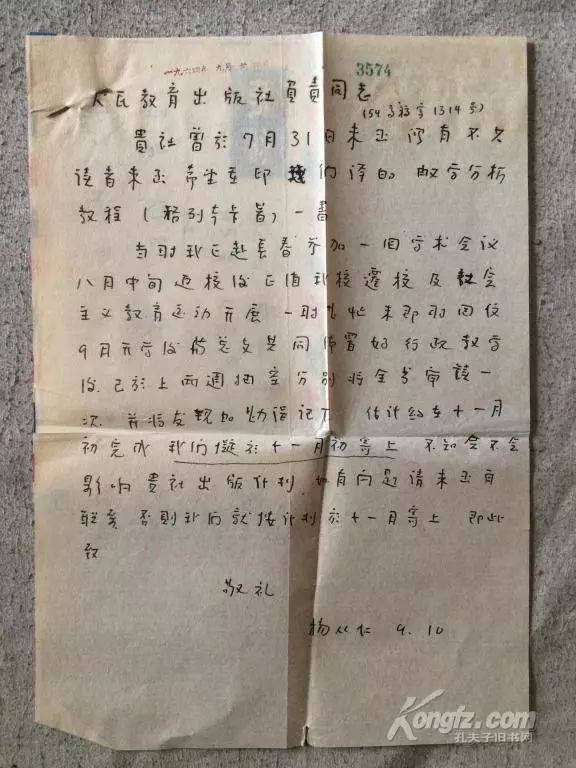 一九六四年 九月
3574
人民教育出版社負責同志
(54高祕字1314号)
貴社曾於7月31日来函 仍有不少
读者来函希望重印我们译的 数学分析
教程 (格列本卡着) 一書
当时我正赴長春参加一個学术会议
八月中旬返校後正值我校遷校及社会
主义教育运动开展 一时 未即时回信
9月开学後 共同佈置好行政教学
後 已於上两週抽空分别将全书审読一
次 并将发现的 误记下 估计约在十一月
初完成 我们儗於十一月初寄上 不知会不会
影响貴社出版计划 如有问题请来函
否则我们就按计划於十一月寄上 即此
致
敬礼
杨从仁 9.10
Kongfz.com
孔夫子旧书网